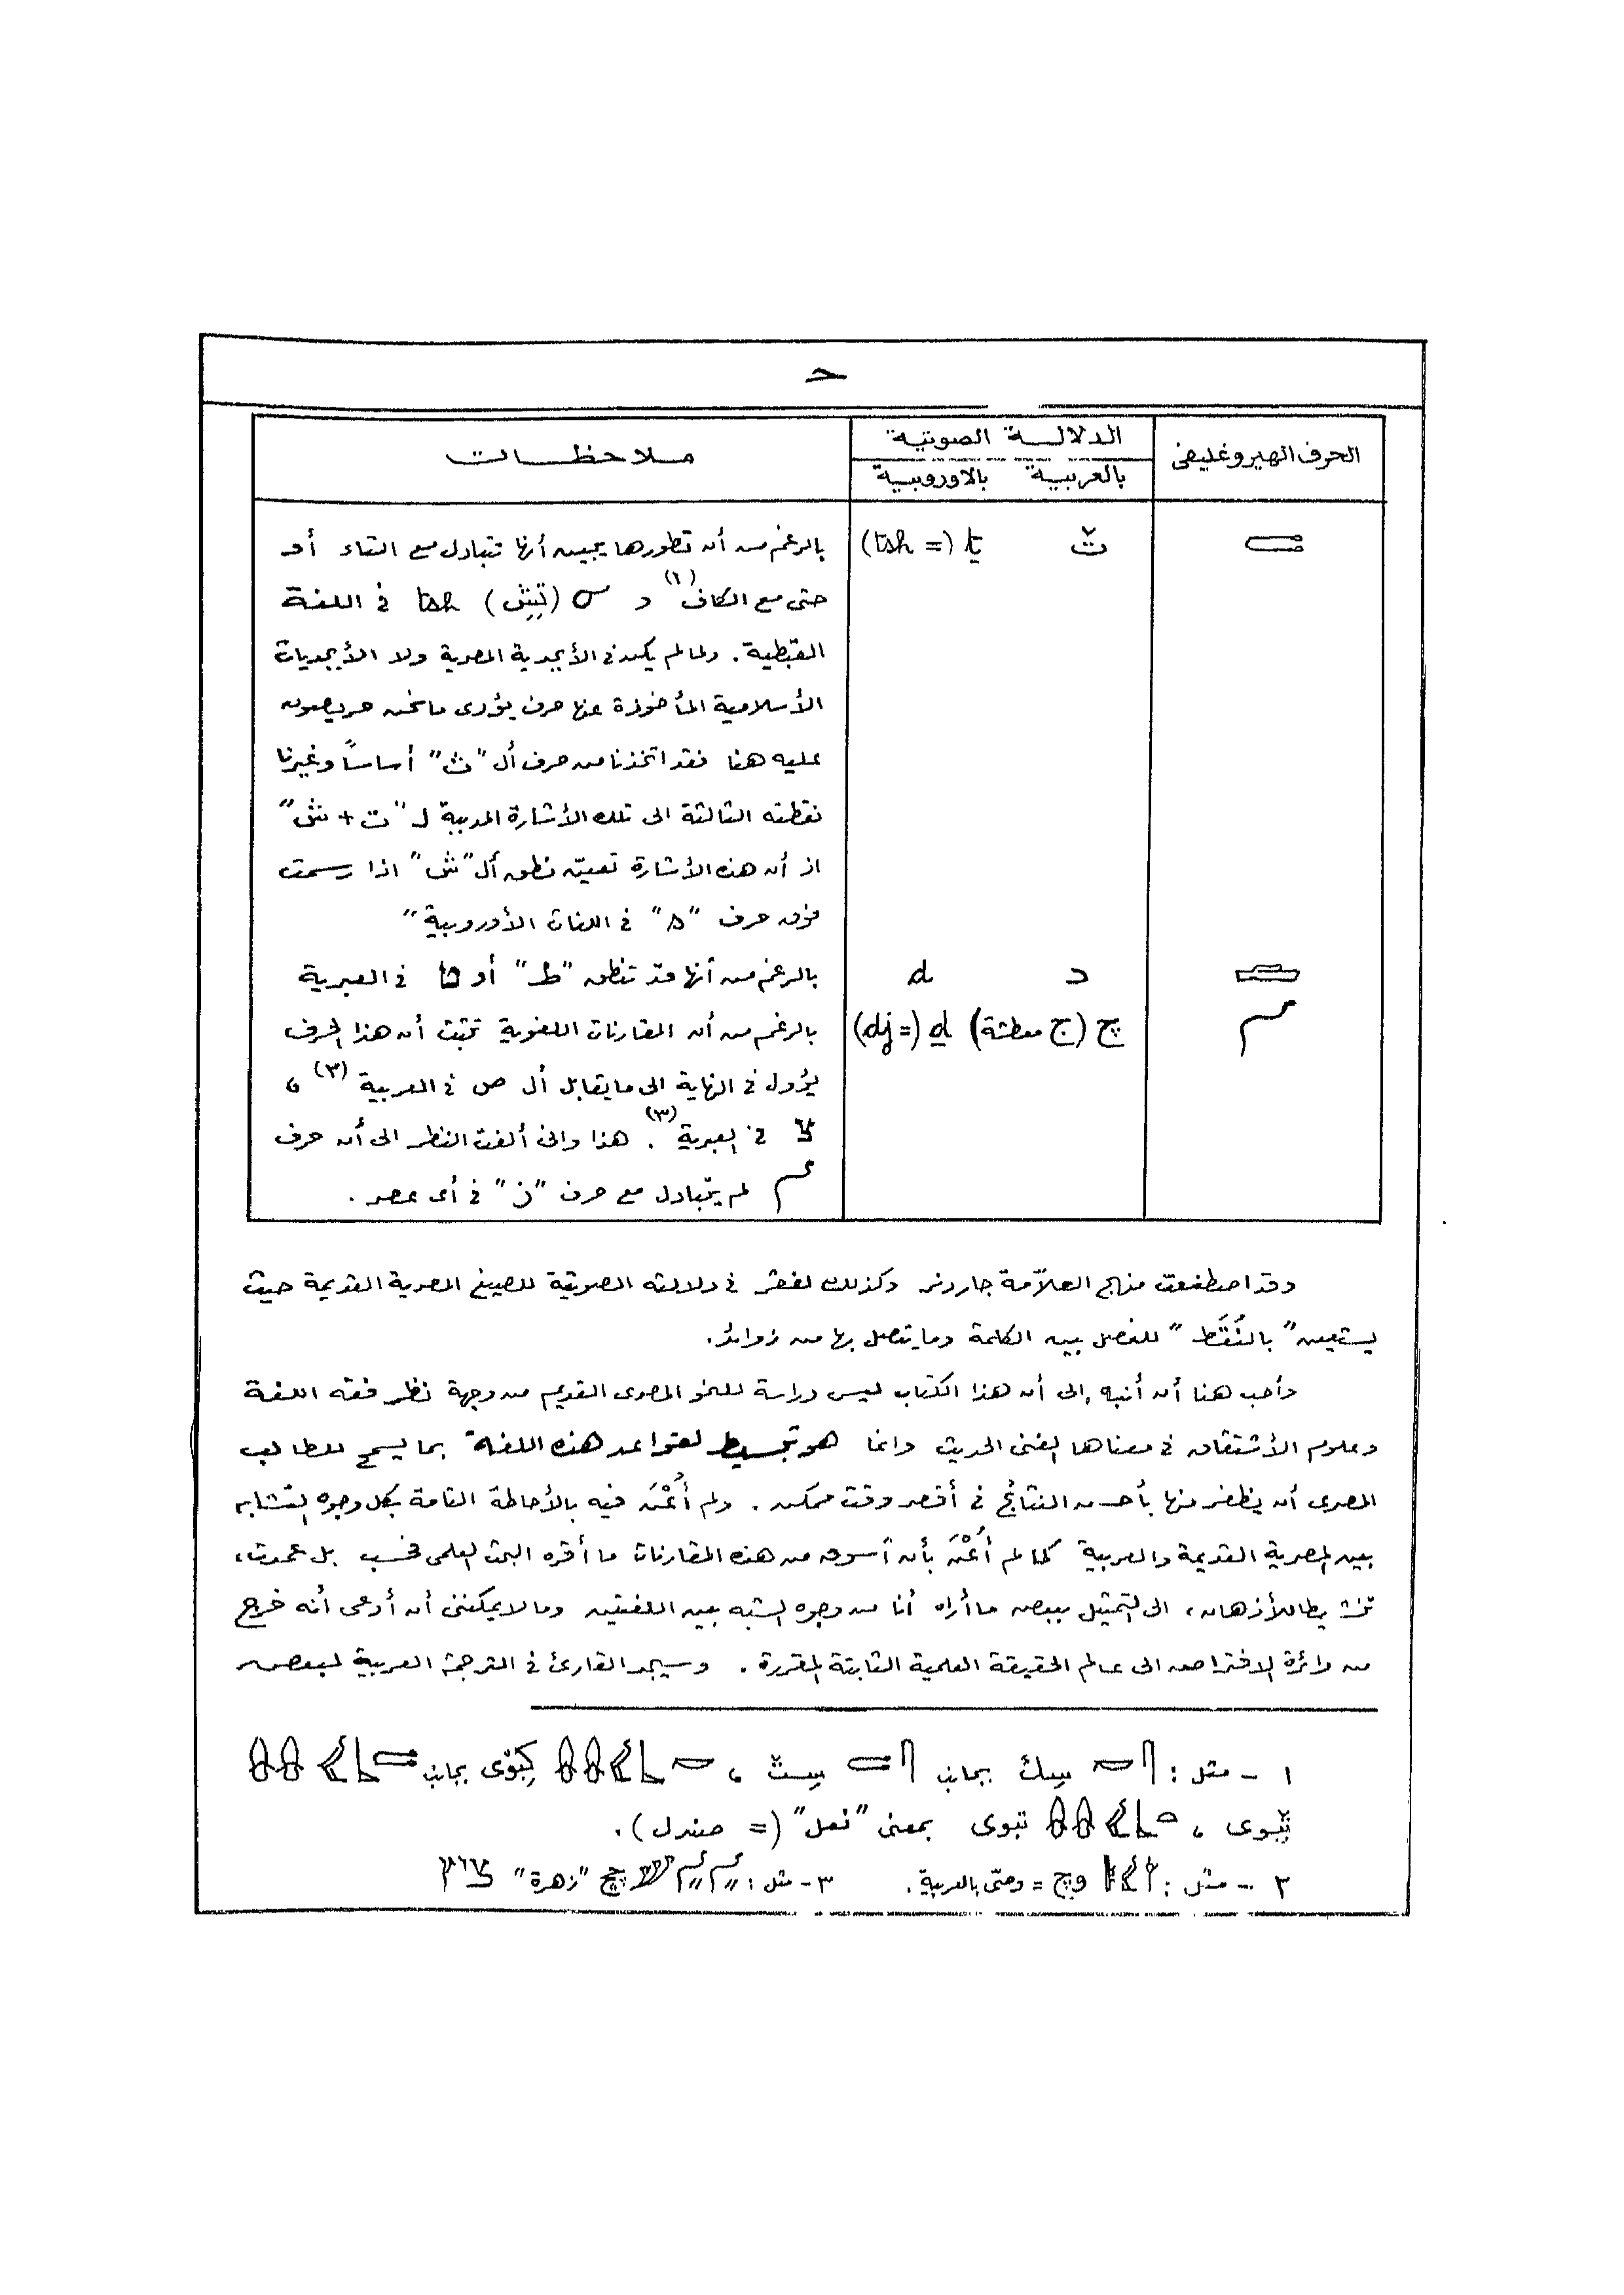 ح
الحرف الهيروغليفى
الدلالة الصوتية
بالعربية بالاوروبية
ملاحظات
ṯ (= tsh)
بالرغم من أن تطورها يجيب أنها تتبادل مع التاء أو
حتى مع الكاف (١) و ϭ (تِش) tsh فى اللغة
القبطية . ولما لم يكن فى الأبجدية المصرية ولا الأبجديات
الأسلامية المأخوذة عنها حرف يؤدى ما نحن حريصون
عليه هنا فقد اتخذنا من حرف أل "ث" أساساً وغيرنا
نقطته الثالثة الى تلك الأشارة المدببة لـ "ت + ش"
اذ أن هذه الأشارة تعين نطق أل "ش" اذا رسمت
فوق حرف "s" فى اللغات الأوروبية "
د d
بالرغم من أنها قد تنطق "ط" أو ט فى العبرية
چ (ج معطشة) ḏ (= dj)
بالرغم من أن المقارنات اللغوية تثبت أن هذا الحرف
يؤول فى النهاية الى ما يقابل أل ص فى العربية (٣) ،
צ فى العبرية (٣) . هذا وانى ألفت النظر الى أن حرف
𓆓 لم يتبادل مع حرف "ز" فى أى عصر .
وقد اصطنعت منهج العلاّمة جاردنر وكذلك لفڤر فى دلالته الصوتية للصيغ المصرية القديمة حيث
يستعين "بالنُقَط" للفصل بين الكلمة وما يتصل بها من زوائد .
وأحب هنا أن أنبه إلى أن هذا الكتاب ليس دراسة للنحو المصرى القديم من وجهة نظر فقه اللغة
وعلوم الأشتقاق فى معناها الفنى الحديث وانما هو تبسيط لقواعد هذه اللغة بما يسمح للطالب
المصرى أن يظفر منها بأحسن النتائج فى أقصر وقت ممكن . ولم أُعْنَ فيه بالأحاطة التامة بكل وجوه التشابه
بين المصرية القديمة والعربية كما لم أُعْنَ بأن أسوق من هذه المقارنات ما أقره البحث العلمى فحسب بل عمدت ،
تنشيطا للأذهان ، الى التمثيل ببعض ما أراه أنا من وجوه الشبه بين اللغتين ومالا يمكننى أن أدعى أنه خرج
من دائرة الافتراض الى عالم الحقيقة العلمية الثابتة المقررة . وسيجد القارئ فى الترجمة العربية لبعض
١ - مثل : 𓋴𓎡 سِك بجانب 𓋴𓍿 ، كِبْوى بجانب
، تبوى بمعنى "نعل" (= صندل) .
٢ - مثل : وچ = وصّى بالعربية . ٣ - مثل : "زهرة"